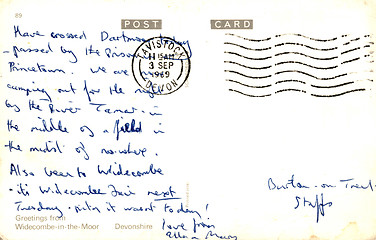 29
POST CARD
Have crossed Dartmoor today
- passed by the prison
Princetown. We are
camping out for the night
by the River Tamar - in
the middle of a field in
the midst of nowhere.
Also been to Widecombe
- its Widecombe Fair next
Tuesday - pity it wasn't today!
love from
TAVISTOCK
11 15AM
3 SEP
1969
DEVON
Burton-on-Trent
Staffs
Greetings from
Widecombe-in-the-Moor Devonshire